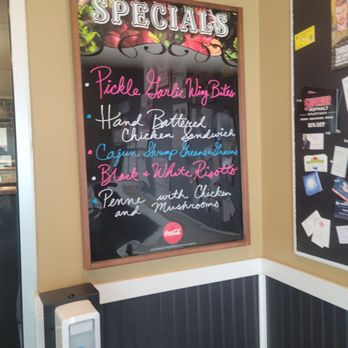 SPECIALS
Pickle Garlic Wing Bites
Hand Battered
Chicken Sandwich
Cajun Shrimp Greens & Grains
Black & White Risotto
Penne with Chicken
and Mushrooms
Coca-Cola